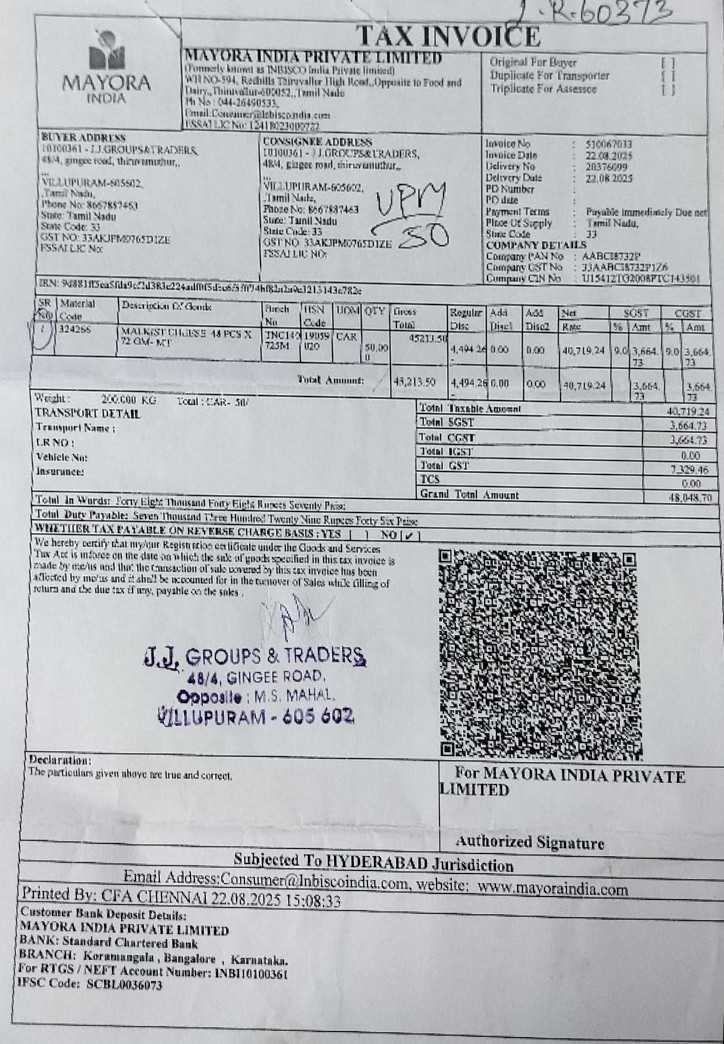 J.R.60373
TAX INVOICE
MAYORA
INDIA
MAYORA INDIA PRIVATE LIMITED
(Formerly known as INBISCO India Private limited)
WH NO-594, Redhills Thiruvallur High Road,,Opposite to Food and
Dairy,,Thiruvallur-600052,,Tamil Nadu
Ph No : 044-26490533,
Email:Consumer@Inbiscoindia.com
FSSAI LIC No: 12418023000722
Original For Buyer [ ]
Duplicate For Transporter [ ]
Triplicate For Assessee [ ]
BUYER ADDRESS
10100361 - J.J.GROUPS&TRADERS,
48/4, gingee road, thiruvamuthur,,
...
VILLUPURAM-605602,
,Tamil Nadu,
Phone No: 8667887463
State: Tamil Nadu
State Code: 33
GST NO: 33AKJPM0765D1ZE
FSSAI LIC No:
CONSIGNEE ADDRESS
10100361 - J.J.GROUPS&TRADERS,
48/4, gingee road, thiruvamuthur,,
...
VILLUPURAM-605602,
,Tamil Nadu,
Phone No: 8667887463
State: Tamil Nadu
State Code: 33
GST NO: 33AKJPM0765D1ZE
FSSAI LIC NO:
UPM
50
Invoice No : 510067033
Invoice Date : 22.08.2025
Delivery No : 20376099
Delivery Date : 22.08.2025
PO Number :
PO date :
Payment Terms : Payable immediately Due net
Place Of Supply : Tamil Nadu,
State Code : 33
COMPANY DETAILS
Company PAN No : AABCI8732P
Company GST No : 33AABCI8732P1Z6
Company CIN No : U15412TG2008PTC143501
IRN:
SR No Material Code Description Of Goods Batch No HSN Code UOM QTY Gross Total Regular Disc Add Disc1 Add Disc2 Net Rate SGST % Amt CGST % Amt
1 324266 MALKIST CHEESE 48 PCS X 72 GM- MT 19059020 CAR 50.000 45213.50 4,494.26- 0.00 0.00 40,719.24 9.0 3,664.73 9.0 3,664.73
Total Amount: 45,213.50 4,494.26- 0.00 0.00 40,719.24 3,664.73 3,664.73
Weight : 200.000 KG Total : CAR- 50/
TRANSPORT DETAIL
Transport Name :
LR NO :
Vehicle No:
Insurance:
Total Taxable Amount 40,719.24
Total SGST 3,664.73
Total CGST 3,664.73
Total IGST 0.00
Total GST 7,329.46
TCS 0.00
Grand Total Amount 48,048.70
Total In Words: Forty Eight Thousand Forty Eight Rupees Seventy Paise
Total Duty Payable: Seven Thousand Three Hundred Twenty Nine Rupees Forty Six Paise
WHETHER TAX PAYABLE ON REVERSE CHARGE BASIS : YES [ ] NO [✓]
We hereby certify that my/our Registration certificate under the Goods and Services
Tax Act is inforce on the date on which the sale of goods specified in this tax invoice is
made by me/us and that the transaction of sale covered by this tax invoice has been
affected by me/us and it shall be accounted for in the turnover of Sales while filling of
return and the due tax if any, payable on the sales .
J.J. GROUPS & TRADERS
48/4, GINGEE ROAD,
Opposite : M.S. MAHAL,
VILLUPURAM - 605 602
Declaration:
The particulars given above are true and correct.
For MAYORA INDIA PRIVATE
LIMITED
Authorized Signature
Subjected To HYDERABAD Jurisdiction
Email Address:Consumer@Inbiscoindia.com, website: www.mayoraindia.com
Printed By: CFA CHENNAI 22.08.2025 15:08:33
Customer Bank Deposit Details:
MAYORA INDIA PRIVATE LIMITED
BANK: Standard Chartered Bank
BRANCH: Koramangala , Bangalore , Karnataka.
For RTGS / NEFT Account Number: INBI10100361
IFSC Code: SCBL0036073